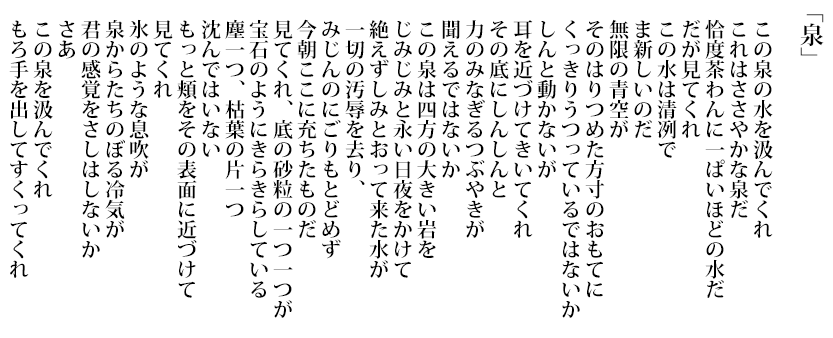 「泉」
この泉の水を汲んでくれ
これはささやかな泉だ
恰度茶わんに一ぱいほどの水だ
だが見てくれ
この水は清冽で
ま新しいのだ
無限の青空が
そのはりつめた方寸のおもてに
くっきりうつっているではないか
しんと動かないが
耳を近づけてきいてくれ
その底にしんしんと
力のみなぎるつぶやきが
聞えるではないか
この泉は四方の大きい岩を
じみじみと永い日夜をかけて
絶えずしみとおって来た水が
一切の汚辱を去り、
みじんのにごりもとどめず
今朝ここに充ちたものだ
見てくれ、底の砂粒の一つ一つが
宝石のようにきらきらしている
塵一つ、枯葉の片一つ
沈んではいない
もっと頬をその表面に近づけて
見てくれ
氷のような息吹が
泉からたちのぼる冷気が
君の感覚をさしはしないか
さあ
この泉を汲んでくれ
もろ手を出してすくってくれ